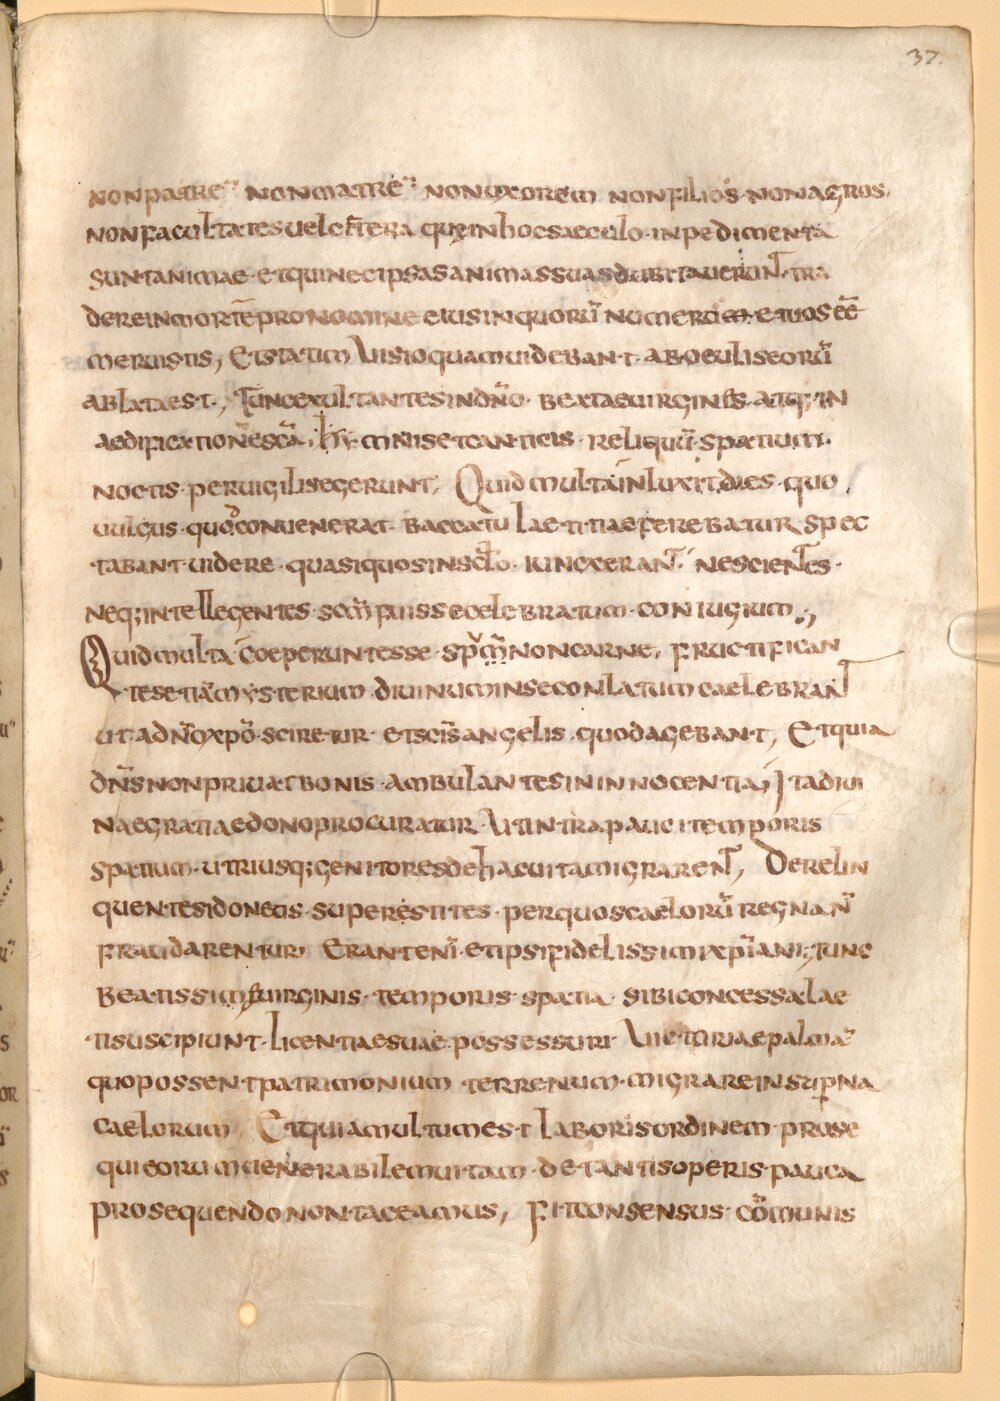 37.
non patre¯ non matre¯ non uxorem non filios· non agros·
non facultates uel cetera quae in hoc saeculo· inpedimenta
sunt animae· et qui nec ipsas animas suas dubitauerunt· tra
dere in mortē pro nomine eius in quorū numero et uos eē
meruistis, Et statim Uisio quam uidebant· ab oculis eorū
ablata est·, Tunc exultantes in dn̄o· beatae uirgines· atq; in
aedificatione scā, hymnis et canticis· reliquū· spatium·
noctis· peruigilis egerunt, Quid multa inluxit dies· quo
uulgus· quoq; conuenerat· baccatu laetitiae ferebatur, spec
tabant uidere· quasi quos in sclo· iunxerant· nescientes·
neq; intellegentes· scm̄ fuisse celebratum· coniugium·,
Quid multa coeperunt esse· spm̄ non carne, fructifican
tes etiā mysterium diuinum in se conlatum caelebrant
ut ad dn̄m xpō· sciretur· et scīs angelis· quod agebant, Et quia
dn̄s non priuat bonis· ambulantes in innocentia, Ita diui
nae gratiae dono procuratur· Ut intra pauci temporis
spatium· utriusq; genitores de hac uita migrarent, Derelin
quentes idoneos· superestites· per quos caelorū regnan̄
fraudarentur, Erant enī· et ipsi fidelissimi xpīani; Tunc
beatissimi uirginis· temporis· spatia· sibi concessa lae
ti suscipiunt· licentiae suae possessuri· Uictoriae palmā
quo possent patrimonium· terrenum· migrare in sup̱na
caelorum, Et quia multum est laboris ordinem· prose
qui eorum uenerabilem uitam· de tantis operis· pauca
prosequendo non taceamus, Fit consensus· cōmunis